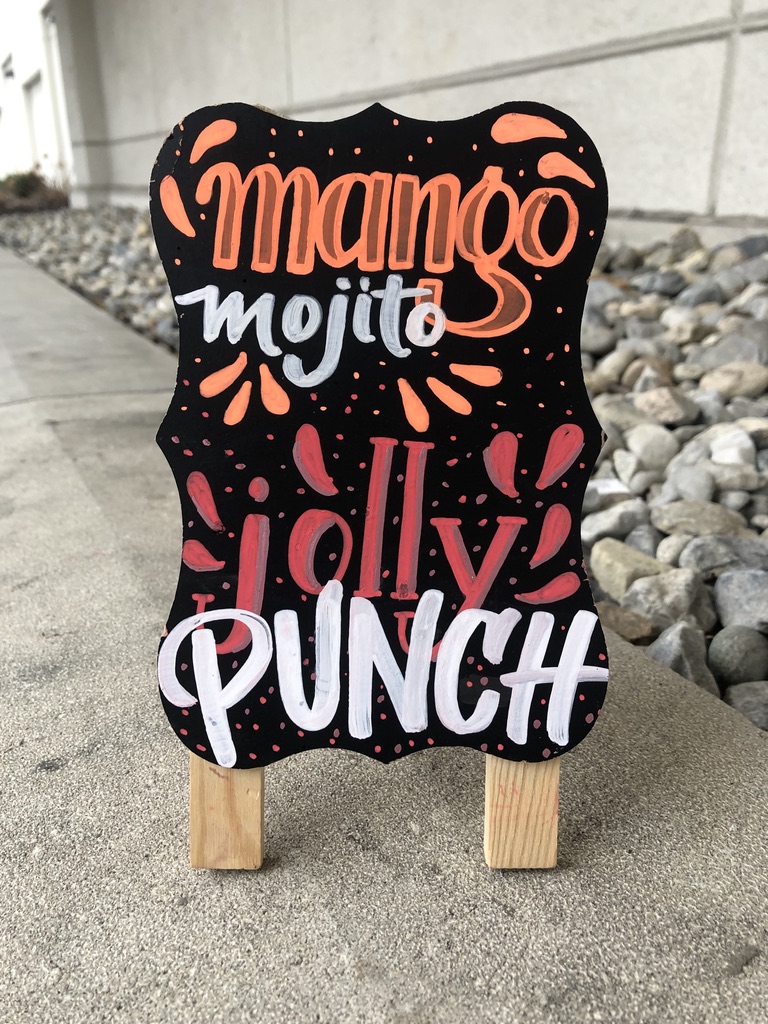 mango
mojito
jolly
PUNCH